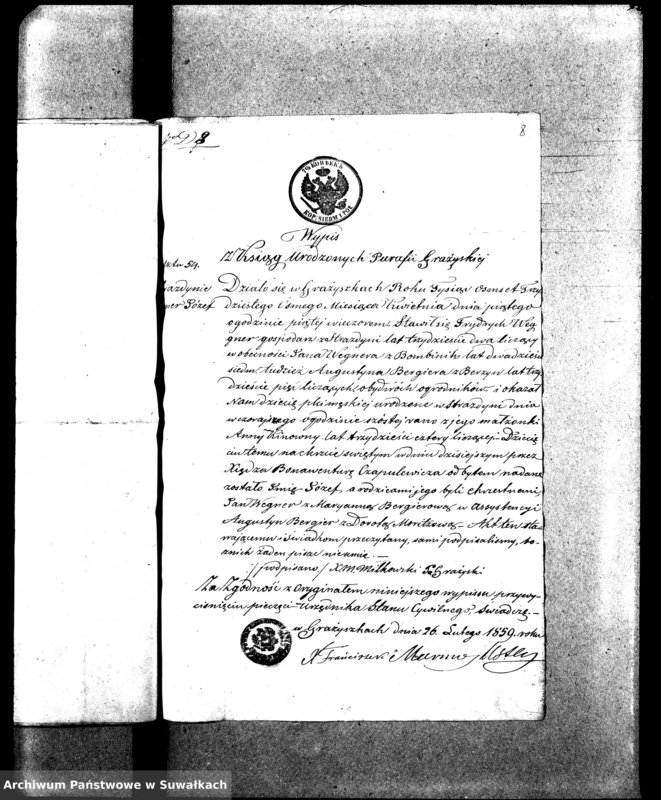 8
8
7½ КОПѢЕКЪ
KOP: SIEDM I PÓŁ
Wypis
Z Ksiąg Urodzonych Parafii Grażyskiej
54.
Działo się w Grażyszkach Roku Tysiąc Osmset Trzy
dziestego Osmego Miesiąca Kwietnia dnia piątego
ogodzinie piątej wieczorem Stawił się Frydrych Weg
gner gospodarz z Strazdyni lat trzydzieści dwa liczący
w obecności Jana Wegnera z Bombinik lat dwadzieścia
siedm tudzież Augustyna Bergiera z Berzyn lat trzy
dzieście pięć liczących obydwóch ogrodników i okazał
Nam dziecię płci męskiej urodzone w Strazdyni dnia
wczorajszego ogodzinie szóstej rano z jego małżonki
Anny lat trzydzieści cztery liczącej. Dziecię
ciu temu na chrzcie świętym w dniu dzisiejszym przez
Xiędza Bonawenturę Czapulewicza odbytem nadane
zostało Imię Józef, a rodzicami jego byli chrzestnemi
Jan Wegner z Maryanną Bergierową w Assystencyi
Augustyn Bergier z Dorotą Akt ten sta
wającemu i świadkom przeczytany, sami podpisaliśmy, bo
z nich żaden pisać nieumie.
/podpisano/ X. M. Miłkowski
Za Zgodność z Oryginałem niniejszego wypisu przywy
ciśnięciu pieczęci Urzędnika Stanu Cywilnego, świadczę.
w Grażyszkach dnia 26 Lutego 1859. roku
X. Franciszek
Archiwum Państwowe w Suwałkach